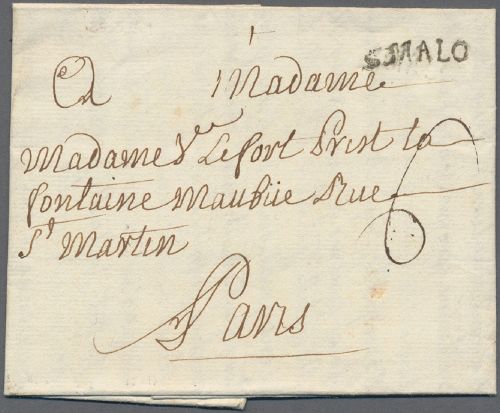 S. MALO
A Madame
Madame Ve Lefort Prest la
fontaine Maubüe Rue
St Martin
6
Paris